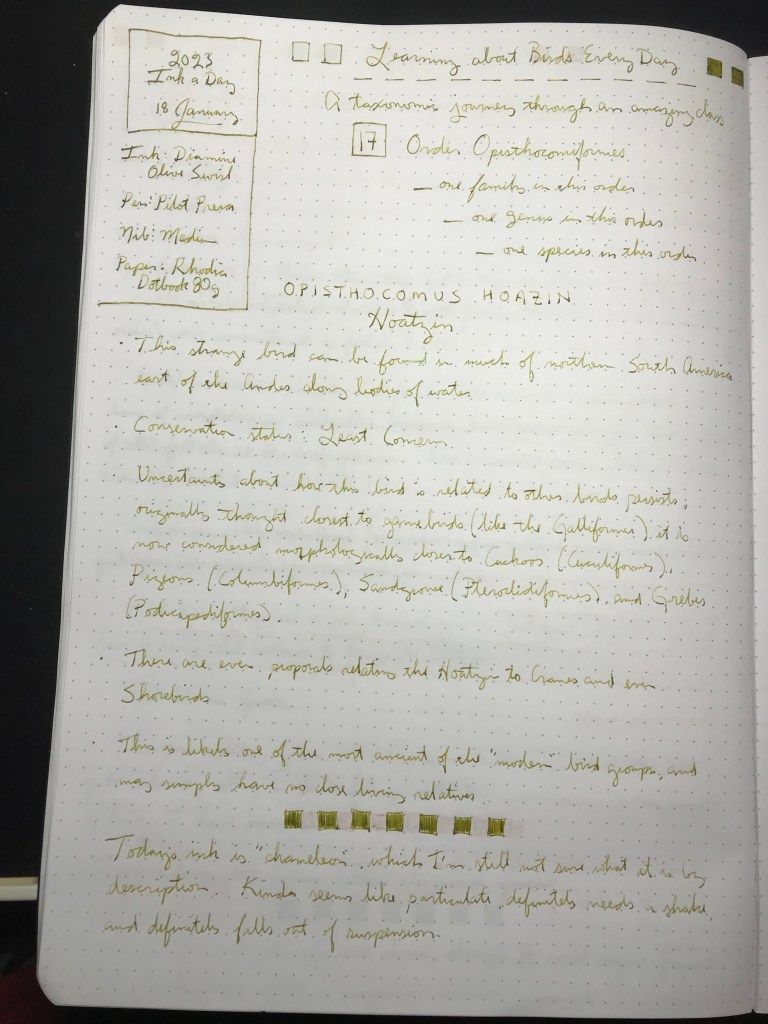 2023
Ink a Day
18 January
Ink: Diamine
Olive Swirl
Pen: Pilot Prera
Nib: Medium
Paper: Rhodia
Dotbook 80g
Learning about Birds Every Day
A taxonomic journey through an amazing class
17 Order Opisthocomiformes
— one family in this order
— one genus in this order
— one species in this order
OPISTHOCOMUS HOAZIN
Hoatzin
· This strange bird can be found in much of northern South America
east of the Andes along bodies of water
· Conservation status: Least Concern
· Uncertainty about how this bird is related to other birds persists;
originally thought closest to gamebirds (like the Galliformes) it is
now considered morphologically closer to Cuckoos (Cuculiformes),
Pigeons (Columbiformes), Sandgrouse (Pteroclidiformes), and Grebes
(Podicipediformes).
· There are even proposals relating the Hoatzin to Cranes and even
Shorebirds
· This is likely one of the most ancient of the "modern" bird groups, and
may simply have no close living relatives
Today's ink is "chameleon", which I'm still not sure what it is by
description. Kinda seems like particulate, definitely needs a shake,
and definitely falls out of suspension.